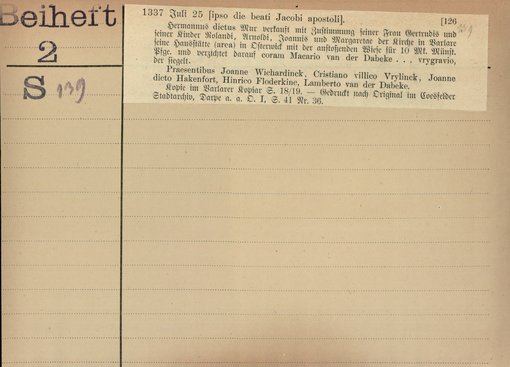 Beiheft
2
S 139
1337 Juli 25 [ipso die beati Jacobi apostoli]. [126
Hermannus dictus Mur verkauft mit Zustimmung seiner Frau Gertrudis und
seiner Kinder Rolandi, Arnoldi, Joannis und Margaretae der Kirche in Varlare
seine Hausstätte (area) in Osterwik mit der anstoßenden Wiese für 10 Mk. Münst.
Pfge. und verzichtet darauf coram Macario van der Dabeke . . . vrygravio,
der siegelt.
Praesentibus Joanne Wichardinck, Cristiano villico Vrylinck, Joanne
dicto Hakenfort, Hinrico Floderkine, Lamberto van der Dabeke.
Kopie im Varlarer Kopiar S. 18/19. — Gedruckt nach Original im Coesfelder
Stadtarchiv, Darpe a. a. O. I, S. 41 Nr. 36.